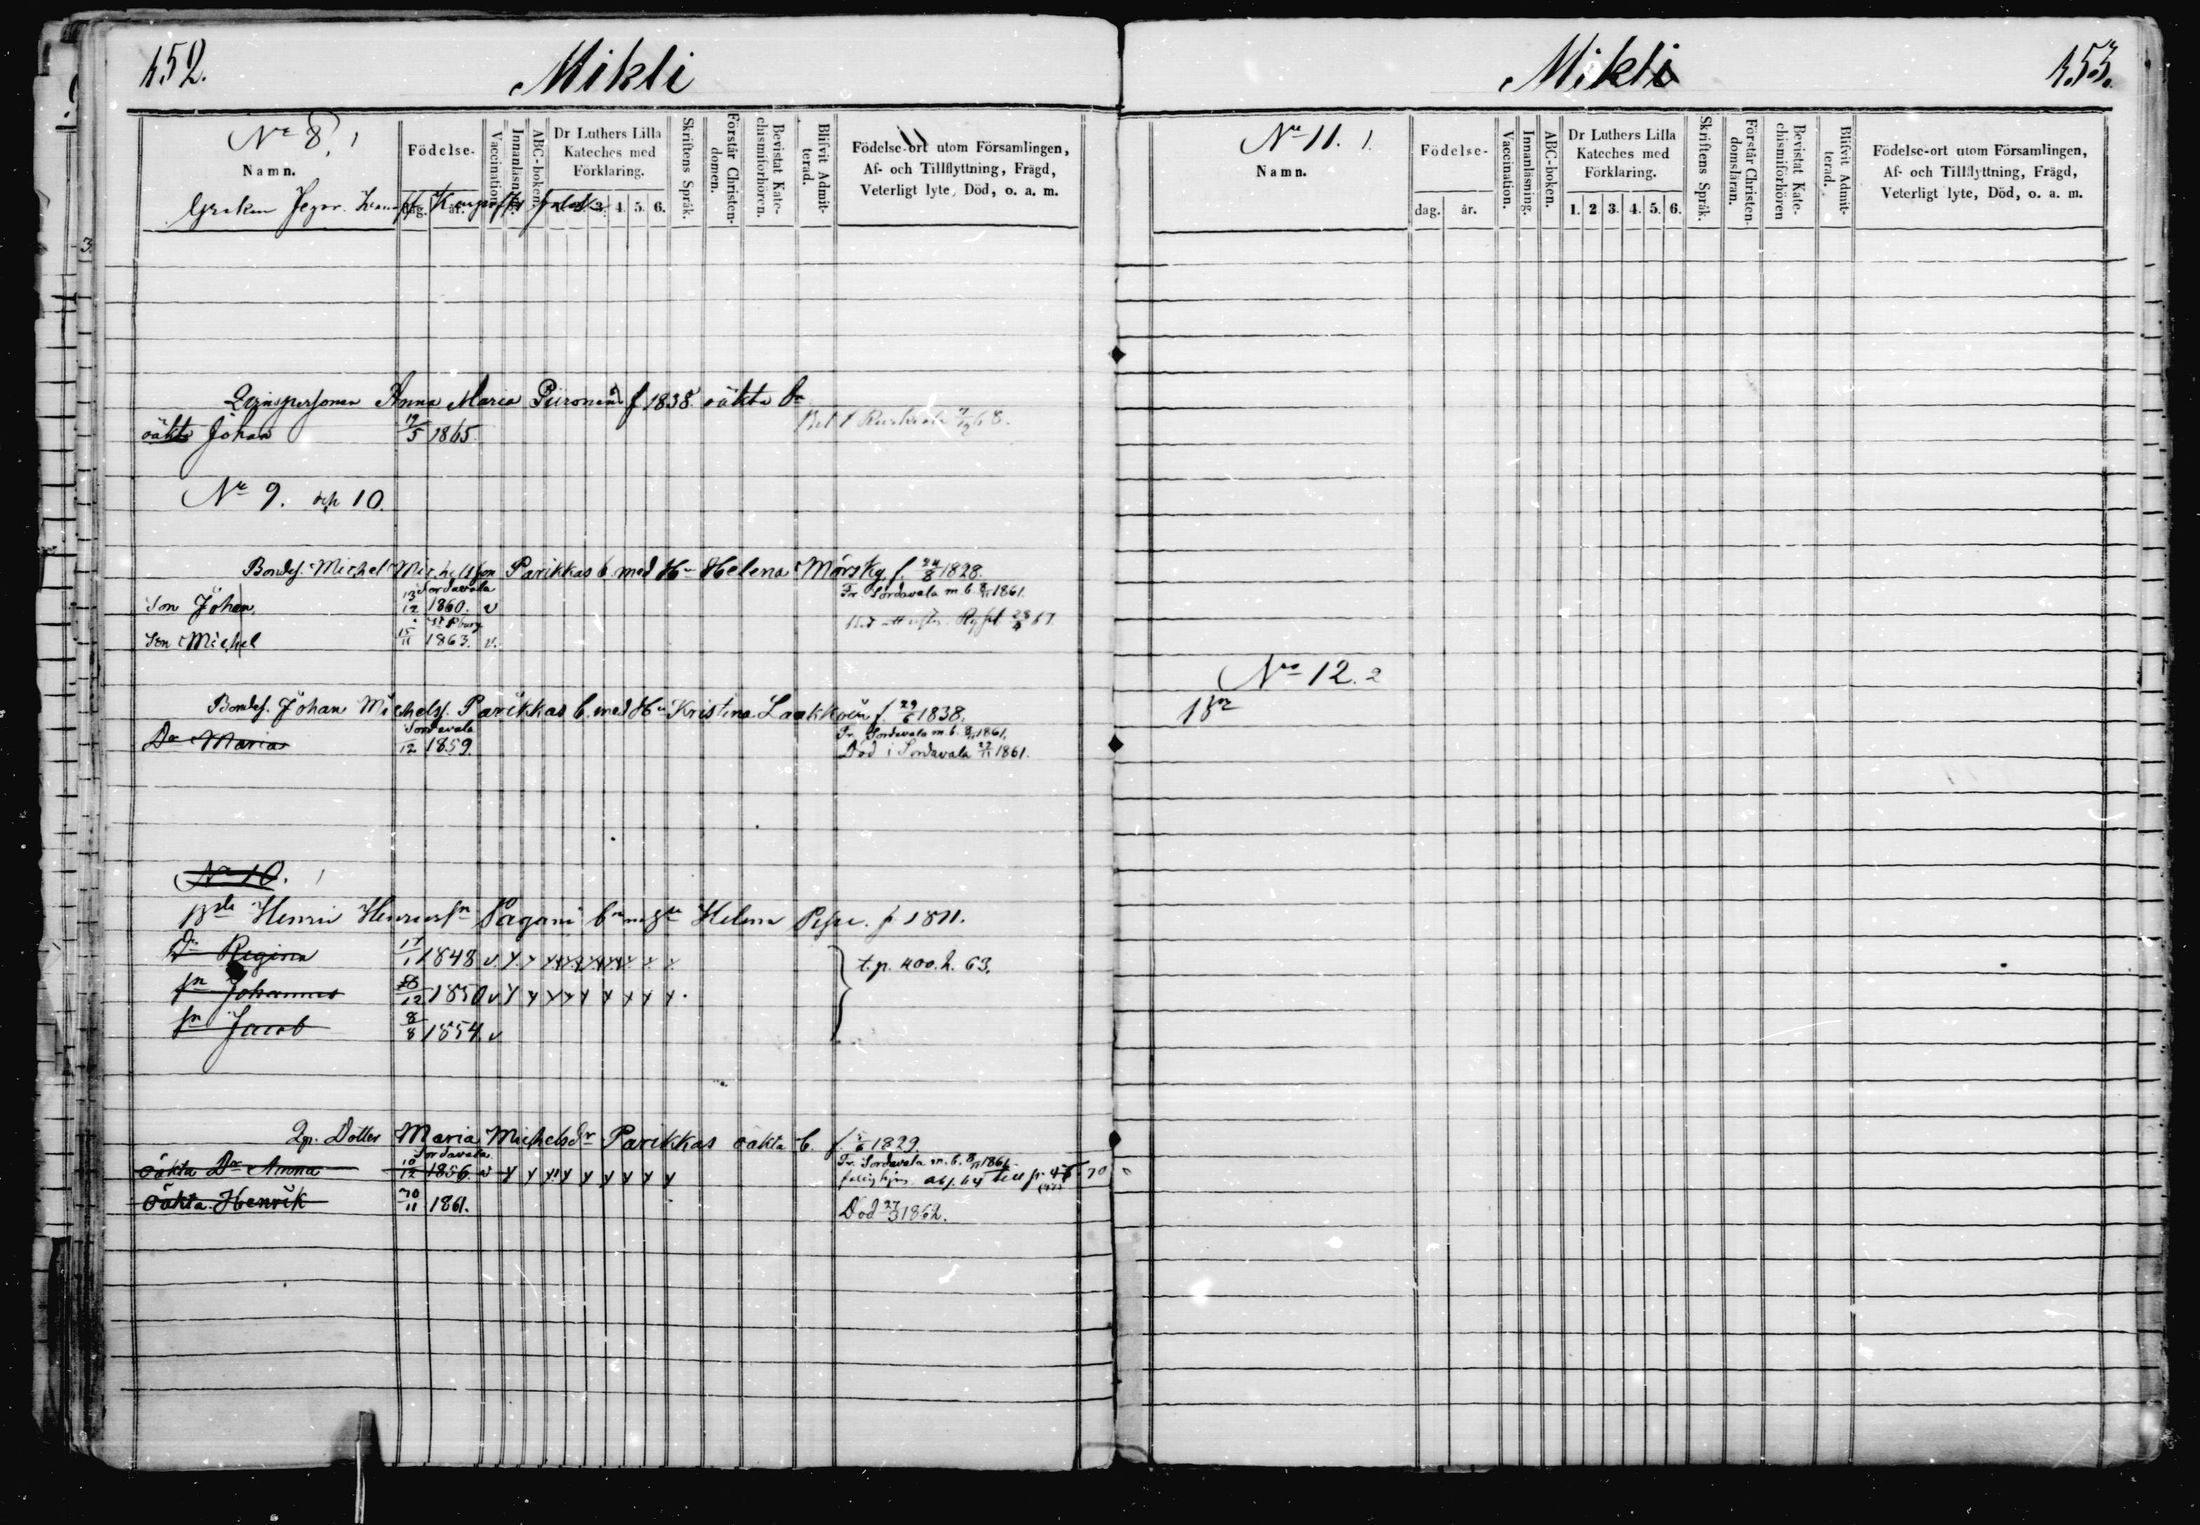 452.
Mikli
Nr 8. 1
Namn.
Födelse-
dag. år.
Vaccination.
Innanläsning.
ABC-boken.
Dr Luthers Lilla Kateches med Förklaring.
4. 5. 6.
Skriftens Språk.
Förstår Christendomen.
Bevistat Katechismiförhören.
Blifvit Admitterad.
Födelse-ort utom Församlingen,
Af- och Tillflyttning, Frägd,
Veterligt lyte, Död, o. a. m.
Greken Jegor
Anna Maria Piironen f 1838. oäkta Br
oäkta Johan 12/5 1865.
Nr 9. och 10.
Bondes. Michel Michelsson Parikkas b. med Hu Helena Mörsky f. 24/8 1828.
Sordavala Fr. Sordavala m. b. 8/11 1861.
Son Johan, 13/12 1860. v
St Pburg
Son Michel 15/11 1863. v.
Bondes. Johan Michelss. Parikkas b. med Hu Kristina Laakkoin f. 29/6 1838.
Sordavala Fr. Sordavala m. b. 8/11 1861.
Dr Maria /12 1859. Död i Sordavala 22/11 1861.
No 10. 1
Henric Henricsn Pagani Helena f 1811.
Dr Regina 17/1 1848 v
t. p. 400. h. 63.
sn Johannes /12 1850 v
sn Jacob 8/8 1854. v
Dotter Maria Michelsdr Parikkas oäkta b. f 5/6 1829
Sordavala Fr. Sordavala m. b. 8/11 1861
oäkta Dr Anna 10/12 1856 v
oäkta Henrik /11 1861. Död 27/3 1862.
453.
Mikli
No 11. 1.
Namn.
Födelse-
dag. år.
Vaccination.
Innanläsning.
ABC-boken.
Dr Luthers Lilla Kateches med Förklaring.
1. 2. 3. 4. 5. 6.
Skriftens Språk.
Förstår Christendomsläran.
Bevistat Katechismiförhören
Blifvit Admitterad.
Födelse-ort utom Församlingen,
Af- och Tillflyttning, Frägd,
Veterligt lyte, Död, o. a. m.
No 12. 2